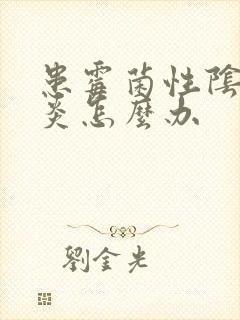 患霉菌性陰
炎怎麼办
劉金光